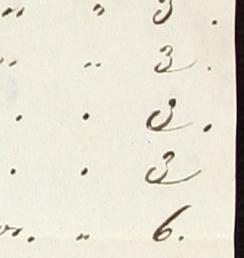 " " 3.
" " 3.
. . 3.
. . 3
" 6.